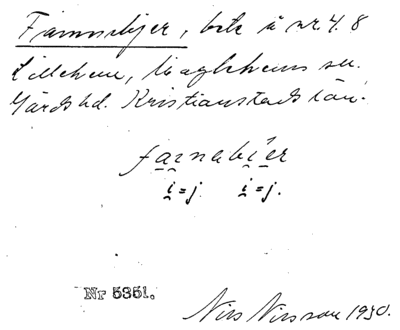 Fannabjer, bete å nr. 4. 8
Lillehem, Maglehems sn.
Gärds hd. Kristianstads län.
fai̯nabi̯er
i̯=j i̯=j.
Nr 5351.
Nils Nilsson 1930.